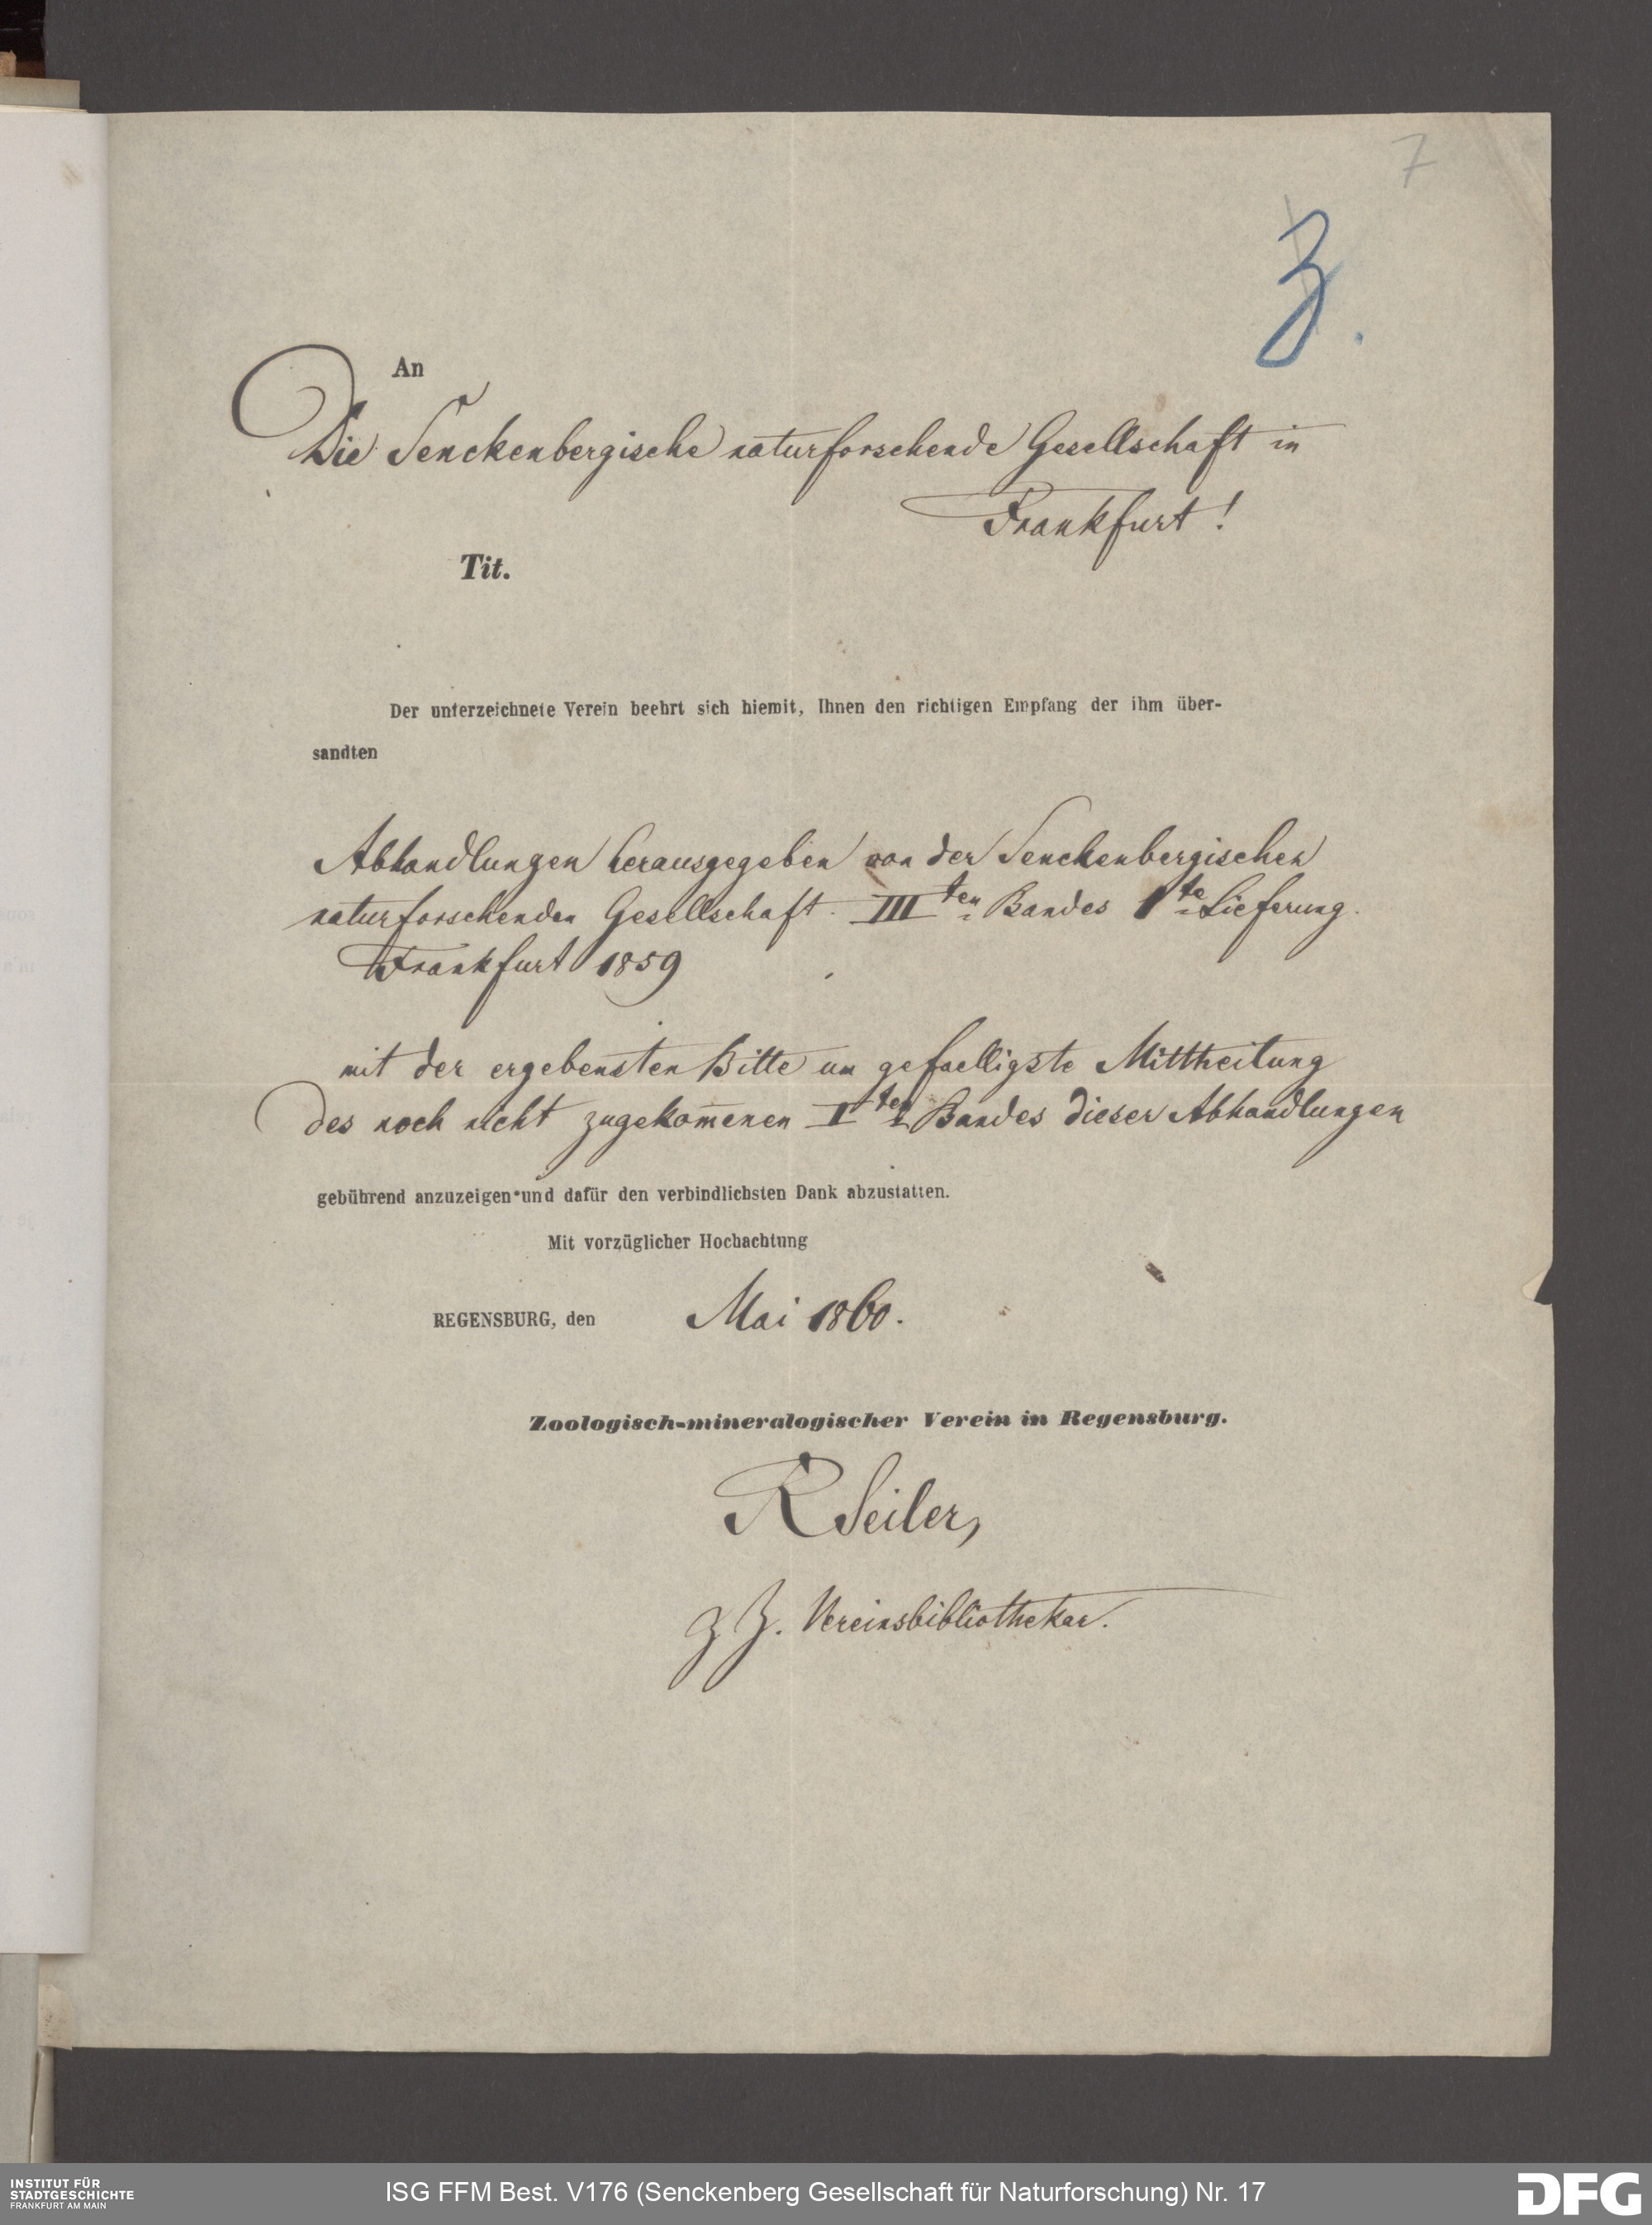 7
Z.
An
Die Senckenbergische naturforschende Gesellschaft in
Frankfurt!
Tit.
Der unterzeichnete Verein beehrt sich hiemit, Ihnen den richtigen Empfang der ihm über-
sandten
Abhandlungen herausgegeben von der Senckenbergischen
naturforschenden Gesellschaft. IIIten Bandes 1te Lieferung.
Frankfurt 1859
mit der ergebensten Bitte um gefaelligste Mittheilung
des noch nicht zugekom̅enen Iten Bandes dieser Abhandlungen
gebührend anzuzeigen und dafür den verbindlichsten Dank abzustatten.
Mit vorzüglicher Hochachtung
REGENSBURG, den Mai 1860.
Zoologisch-mineralogischer Verein in Regensburg.
R Seiler,
z Z. Vereinsbibliothekar.
INSTITUT FÜR
STADTGESCHICHTE
FRANKFURT AM MAIN
ISG FFM Best. V176 (Senckenberg Gesellschaft für Naturforschung) Nr. 17
DFG